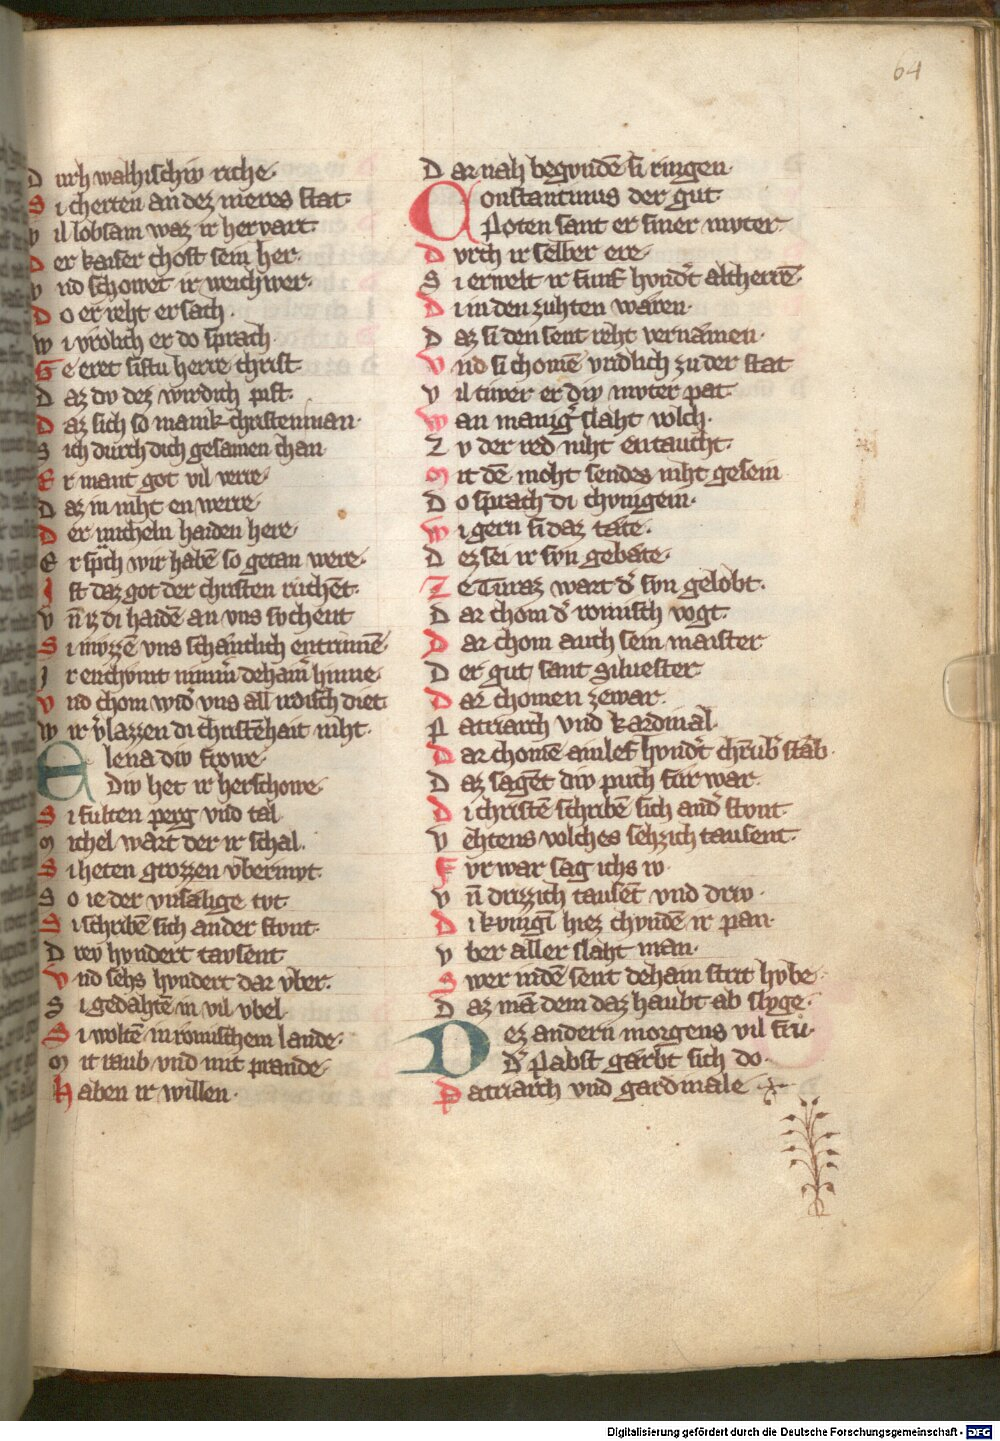 64
Durh walhischiv riche·
Si cherten an dez meres stat·
Vil lobsam waz ir hervart·
Der kaiser chost sein her·
Vnd schowet ir weichwer·
Do er reht ersach·
Wi vrolich er do sprach·
Geeret sistu herre christ·
Daz dv dez wirdich pist·
Daz sich so manik christenman·
Sich durch dich gesamen chan·
Er mant got vil verre·
Daz in niht en werre·
Der micheln haiden here·
Er sp̄ch wir habē so getan were·
Ist daz got der christen růchent·
Vn̄ iz di haidē an vns svchent
Si mvzzē vns schantlich entrinnē·
Ir enchvmt nim̄ deham̄ hinne·
Vnd chom wid᷑ vns all irdisch diet·
Wir v᷑lazzen di christēhait niht·
Elena div frowe·
Div het ir herschowe·
Si fulten perg vnd tal
Michel wart der ir schal·
Si heten grozzen vbermvt·
So ie der vnsålige tvt·
Si schribē sich ander stvnt·
Drev hvndert tavsent
Vnd sehs hvndert dar vber·
Si gedahtē in vil vbel·
Si woltē in romischem lande·
Mit raub vnd mit prande·
Haben ir willen·
Dar nah begvndē si ringen·
Constantinus der gut·
Poten sant er siner mvter·
Dvrch ir selber ere·
Si erwelt ir funf hvnd᷑t altherrē·
Di in den zuhten waren·
Daz si den sent reht vernamen·
Vnd si chomē vridlich zu der stat
Vil tiwer er div mvter pat·
Wan manig᷑ slaht volch·
Zv der red niht entaucht·
Mit dē moht sendes niht gesein
Do sprach di chvnigein·
Wi gern si daz tate·
Dez sei ir svn gebåte·
Ze Turaz wart d᷑ svn gelobt·
Dar chom d᷑ romisch vogt·
Dar chom auch sein maister
Der gut sant Siluester
Dar chomen zewar·
Patriarch vnd kardinal·
Dar chomē ainlef hvnd᷑t chrūb᷑ stab·
Daz sagēt div puch fur war·
Di christē schribē sich and᷑ stvnt·
Vehtens volches sehzich tausent·
Fvr war sag ichs iv·
Vn̄ drizzich tausēt vnd driv·
Di kvnigī hiez chvndē ir pan·
Vber aller slaht man·
Swer indē sent deham strit hvbe·
Daz mā dem daz haubt ab slvge·
Dez andern morgens vil frů·
D᷑ Pabst garbt sich do·
Patriarch vnd gardinale
Digitalisierung gefördert durch die Deutsche Forschungsgemeinschaft - DFG